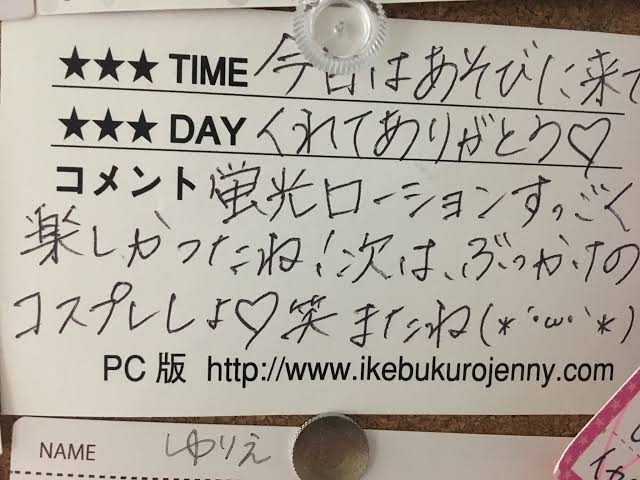 ★★★ TIME 今日はあそびに来て
★★★ DAY くれてありがとう♡
コメント 蛍光ローションすっごく
楽しかったね!次は、ぶっかけの
コスプレしよ♡笑 またね(*´・ω・`*)
PC版 http://www.ikebukurojenny.com
NAME ゆりえ